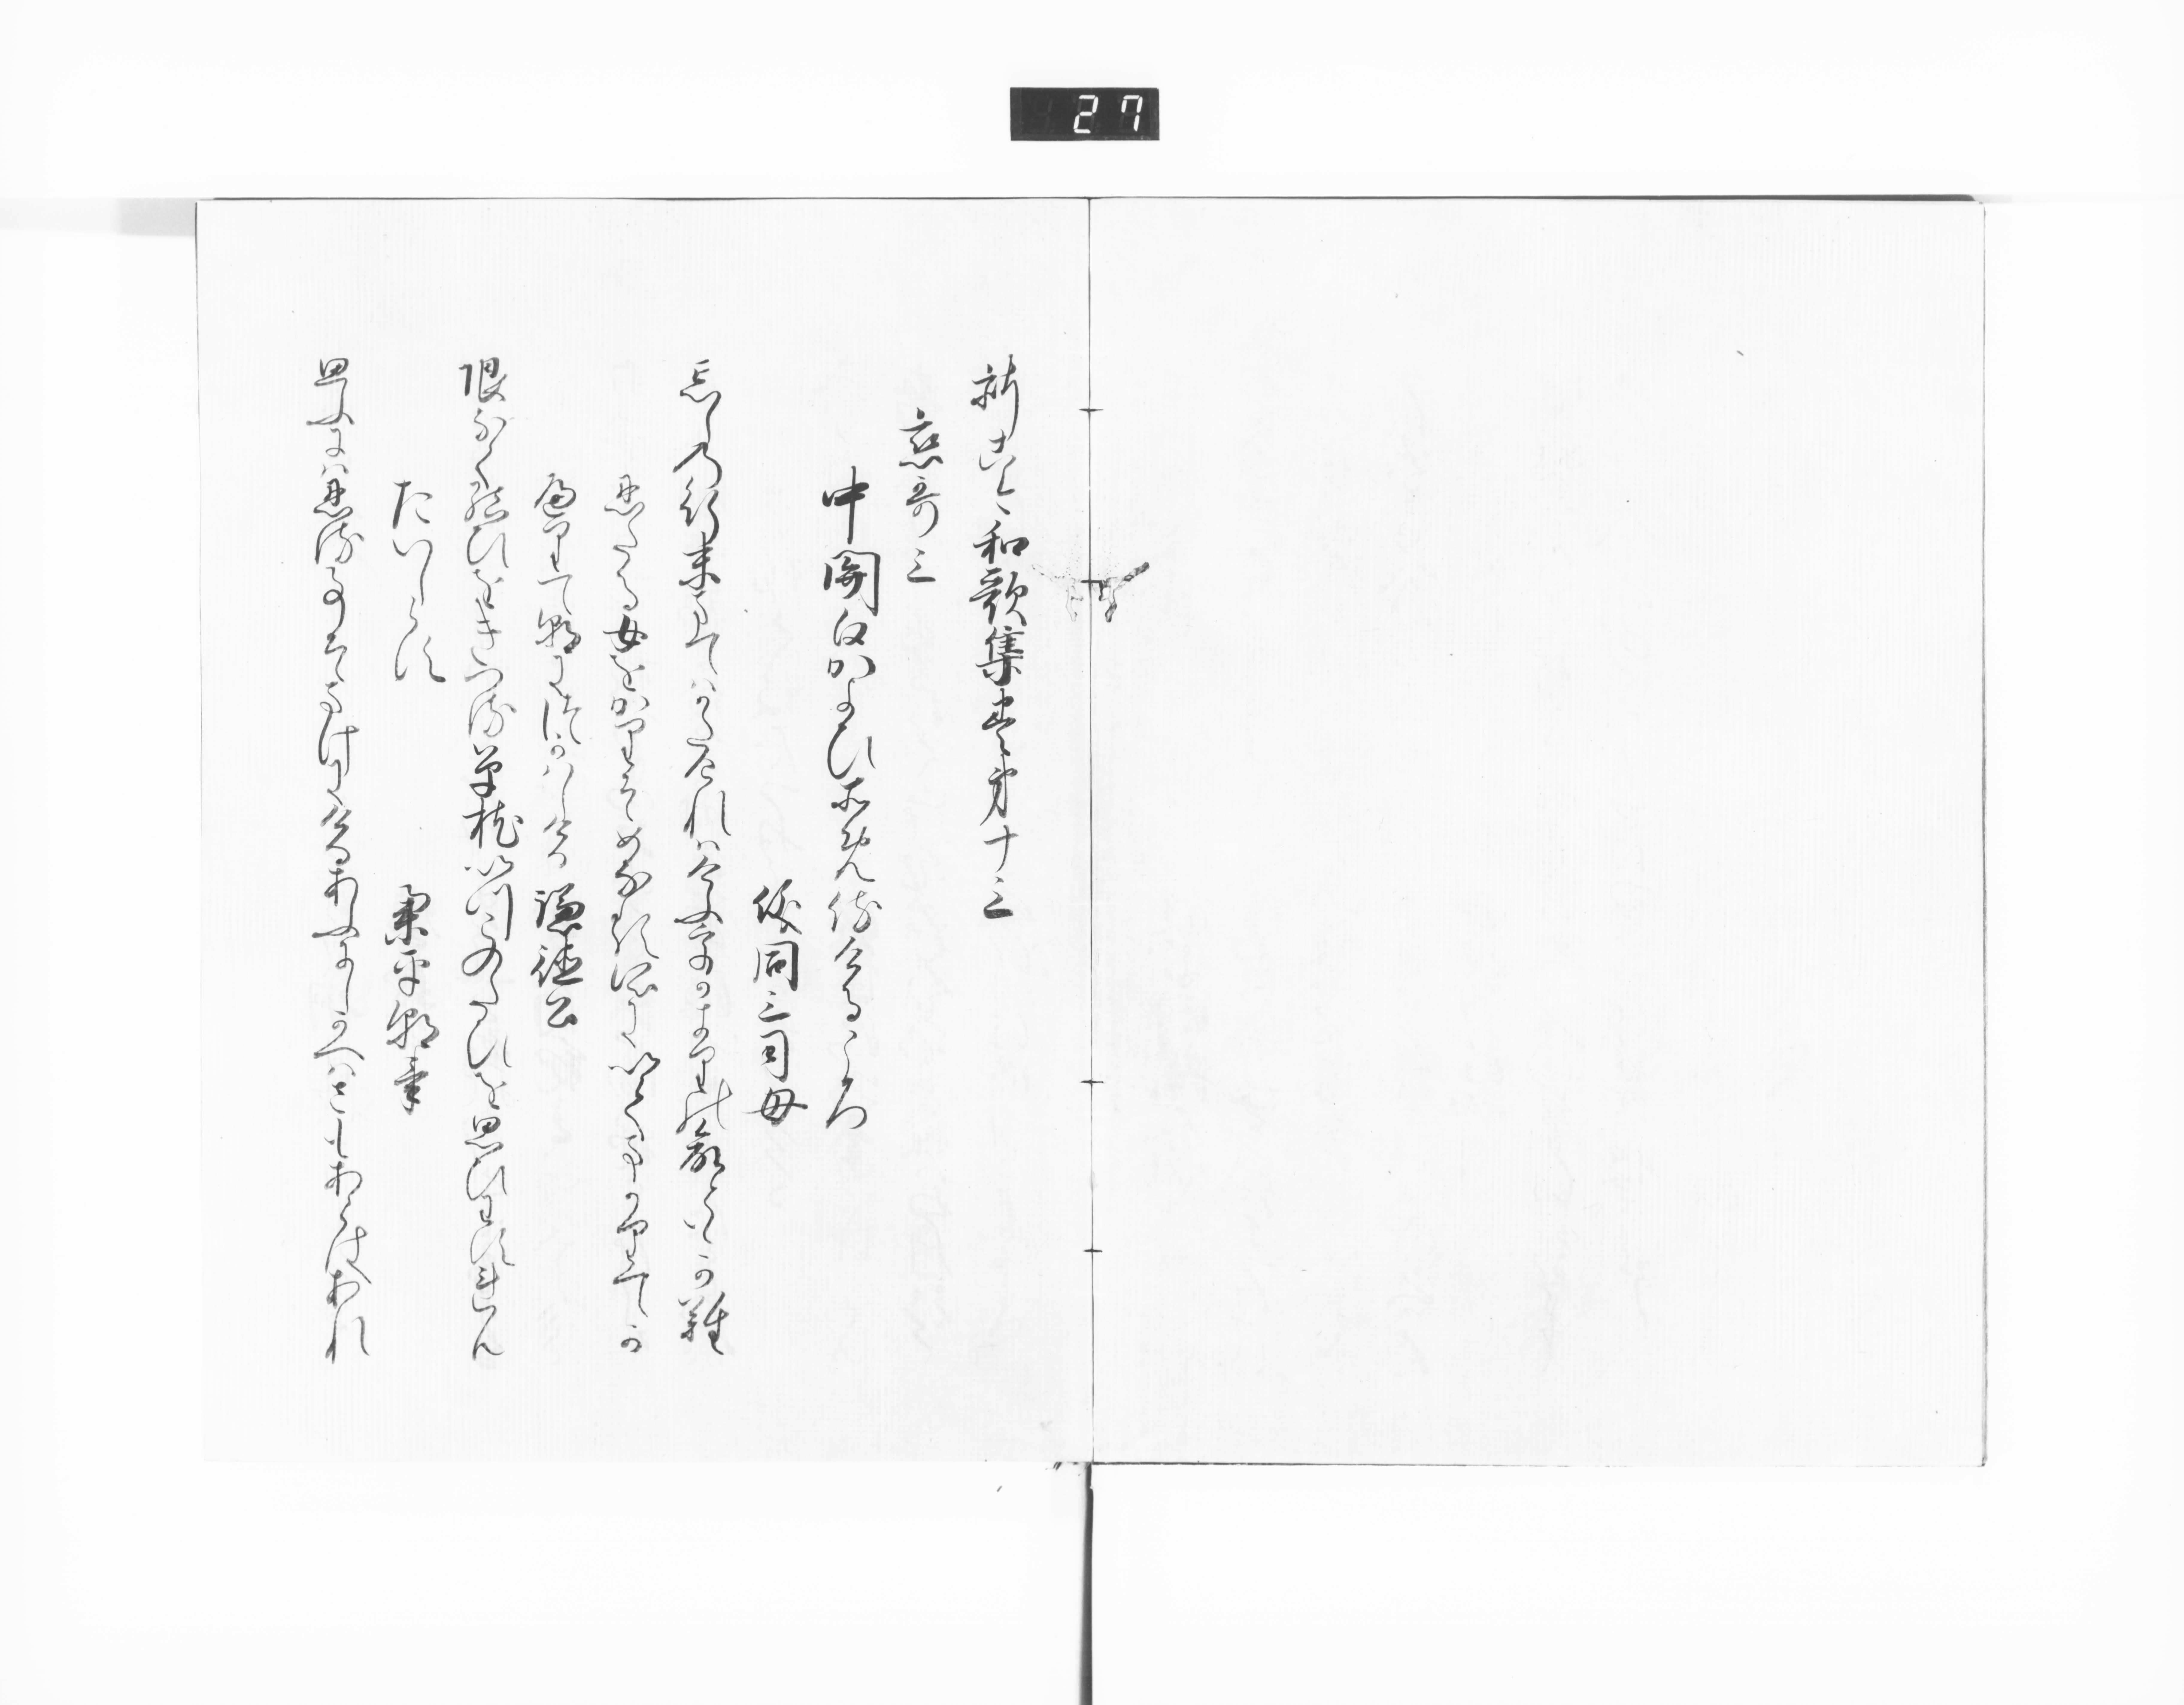 27
新古今和歌集巻第十三
恋哥三
中関白かよひそめ侍けるころ
儀同三司母
忘しの行末まてはかたけれはけふをかきりの命ともか難
忍たる女をかりそめなる所にゐてまかりてか
へりて朝につかはしける 謙徳公
限なく結ひをきつる草枕いつこのたひを思ひわすれん
たいしらす
業平朝臣
思ふには忍る事そまけにけるあふにしかへはさもあらはあれ